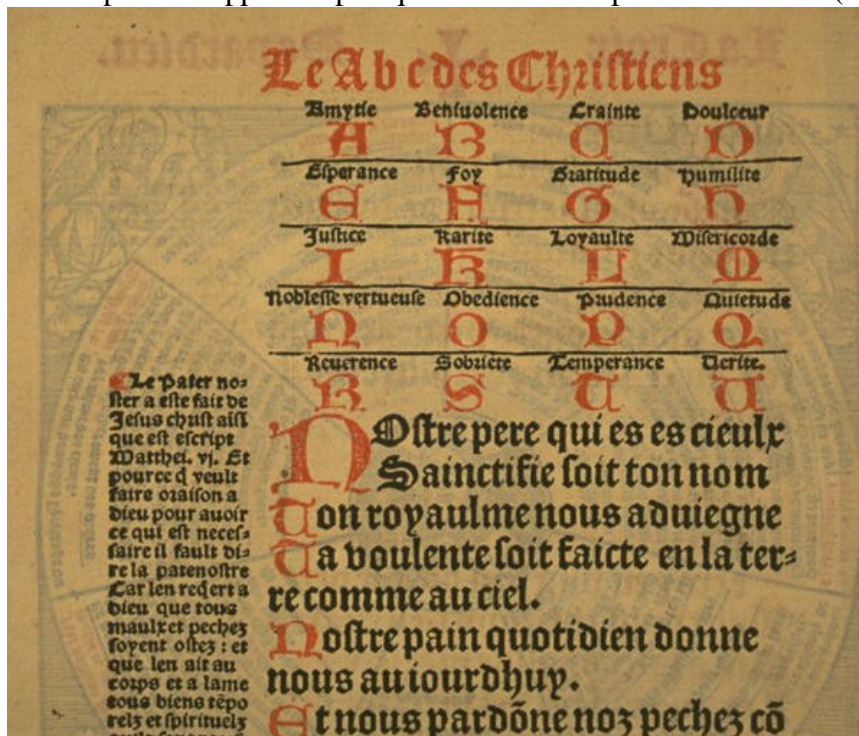 Le A b c des Chriſtiens
Amytie Beniuolence Crainte Doulceur
A B C D
Eſperance Foy Gratitude Humilite
E F G H
Juſtice Karite Loyaulte Miſericorde
I K L M
Nobleſſe vertueuſe Obedience Prudence Quietude
N O P Q
Reuerence Sobriete Temperance Verite.
R S T V
Le Pater no⸗
ſter a eſte fait de
Jeſus chriſt aiſi
que eſt eſcript
Matthei. vj. Et
pource q̄ veult
faire oraiſon a
dieu pour auoir
ce qui eſt neceſ⸗
ſaire il fault di⸗
re la patenoſtre
Car len reqert a
dieu que tous
maulx et pechez
ſoyent oſtez : et
que len ait au
corps et a lame
tous biens tēpo
relz et ſpirituelz
NOſtre pere qui es es cieulx
Sainctifie ſoit ton nom
Ton royaulme nous aduiegne
Ta voulente ſoit faicte en la ter⸗
re comme au ciel.
Noſtre pain quotidien donne
nous auiourdhuy.
Et nous pardōne noz pechez cō